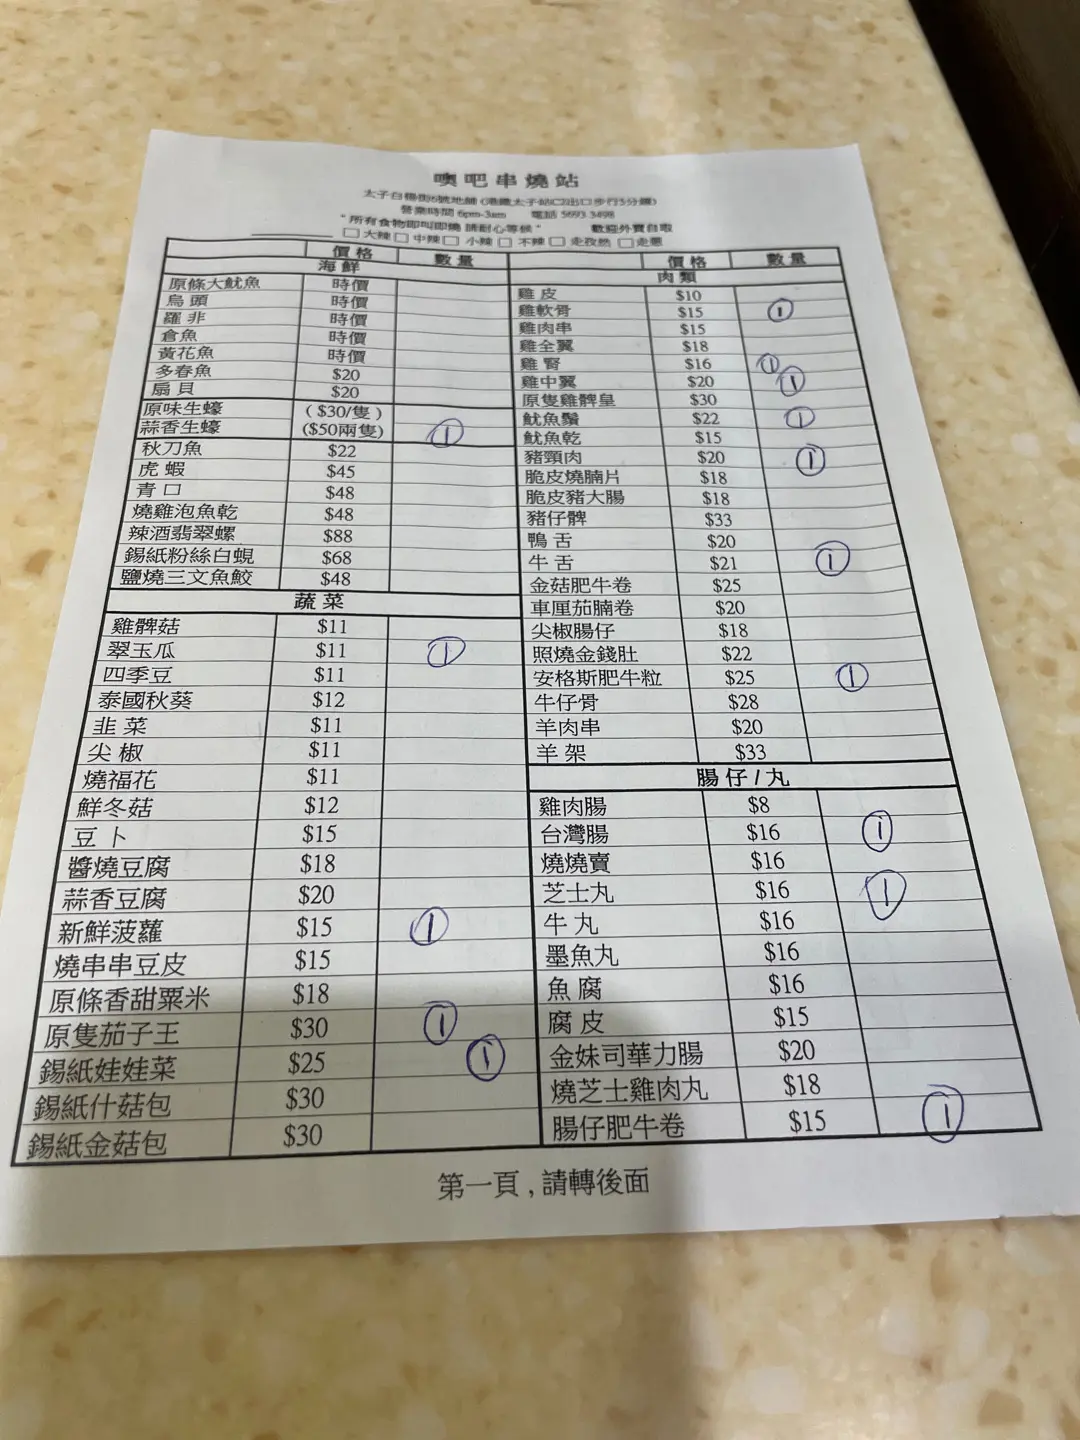 噢吧串燒站
太子白楊街6號地舖 (港鐵太子站C2出口步行5分鐘)
營業時間 6pm-3am 電話 5693 3498
"所有食物即叫即燒 請耐心等候" 歡迎外賣自取
大辣 中辣 小辣 不辣 走孜然 走蔥
價格 數量
海鮮
原條大魷魚 時價
烏頭 時價
羅非 時價
倉魚 時價
黃花魚 時價
多春魚 $20
扇貝 $20
原味生蠔 ($30/隻)
蒜香生蠔 ($50兩隻) 1
秋刀魚 $22
虎蝦 $45
青口 $48
燒雞泡魚乾 $48
辣酒翡翠螺 $88
錫紙粉絲白蜆 $68
鹽燒三文魚鮫 $48
蔬菜
雞髀菇 $11
翠玉瓜 $11 1
四季豆 $11
泰國秋葵 $12
韭菜 $11
尖椒 $11
燒福花 $11
鮮冬菇 $12
豆卜 $15
醬燒豆腐 $18
蒜香豆腐 $20
新鮮菠蘿 $15 1
燒串串豆皮 $15
原條香甜粟米 $18
原隻茄子王 $30 1
錫紙娃娃菜 $25 1
錫紙什菇包 $30
錫紙金菇包 $30
價格 數量
肉類
雞皮 $10
雞軟骨 $15 1
雞肉串 $15
雞全翼 $18
雞腎 $16 1
雞中翼 $20 1
原隻雞髀皇 $30
魷魚鬚 $22 1
魷魚乾 $15
豬頸肉 $20 1
脆皮燒腩片 $18
脆皮豬大腸 $18
豬仔髀 $33
鴨舌 $20
牛舌 $21 1
金菇肥牛卷 $25
車厘茄腩卷 $20
尖椒腸仔 $18
照燒金錢肚 $22
安格斯肥牛粒 $25 1
牛仔骨 $28
羊肉串 $20
羊架 $33
腸仔/丸
雞肉腸 $8
台灣腸 $16 1
燒燒賣 $16
芝士丸 $16 1
牛丸 $16
墨魚丸 $16
魚腐 $16
腐皮 $15
金妹司華力腸 $20
燒芝士雞肉丸 $18
腸仔肥牛卷 $15 1
第一頁,請轉後面